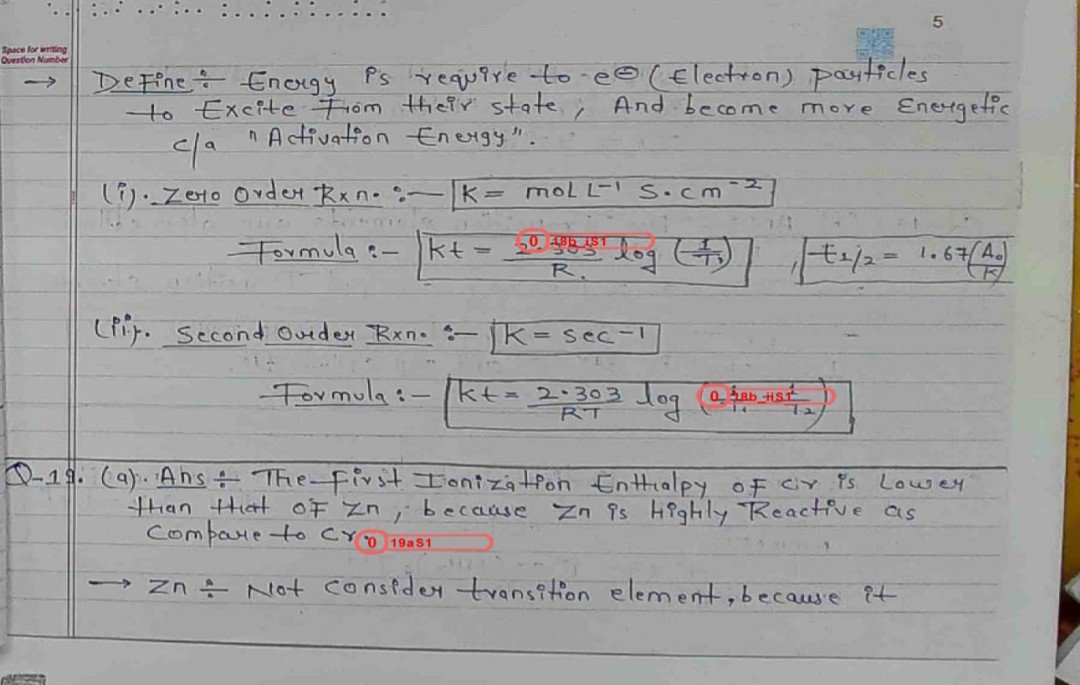 5
Space for writing
Question Number
→ Define ÷ Energy is require to e⊖ (Electron) particles
to Excite From their state, And become more Energetic
c/a "Activation Energy".
(i). Zero Order Rxn. :- K = mol L⁻¹ S.cm⁻²
Formula :- Kt = 2.303/R. log , t1/2 = 1.67(A₀/K)
0 18b_iS1
(ii). Second Order Rxn. :- K = sec-1
Formula :- Kt = 2.303/RT log
0 18b_iiS1
Q-19. (a). Ans ÷ The First Ionization Enthalpy of cr is Lower
than that of Zn, because Zn is Highly Reactive as
Compare to Cr.
0 19aS1
→ Zn ÷ Not consider transition element, because it